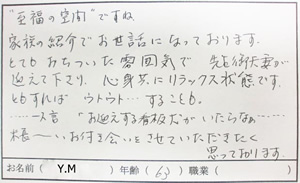 "至福の空間"ですね
家族の紹介でお世話になっております。
とてもおちついた雰囲気で 先生御夫妻が
迎えて下さり、心身共にリラックス状態です。
ともすれば ウトウト…することも。
……一言 「お迎えする看板だが いたらなぁ……
末長〜いお付き合いをさせていただきたく
思っております。
お名前( Y.M 年齢( 63 ) 職業( )